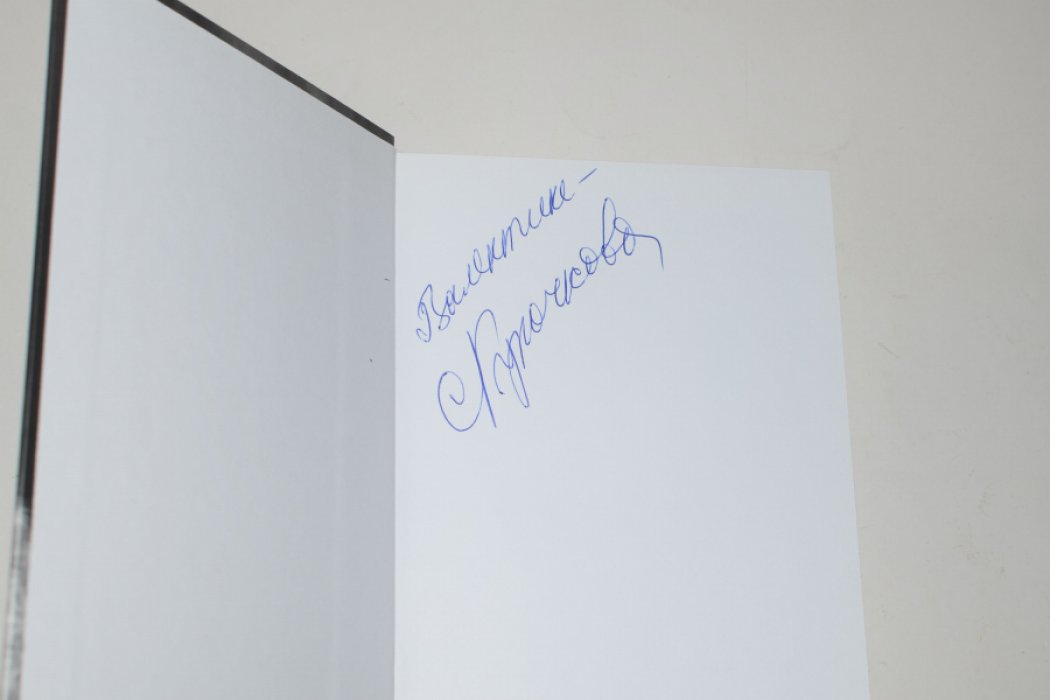 Валентине –
Крючкова